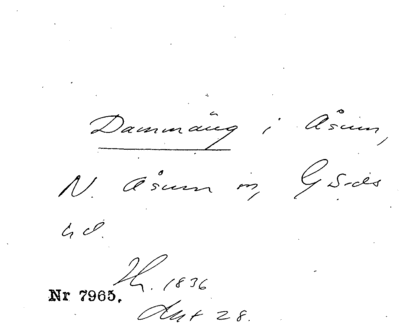 Dammäng i Åsum,
N. Åsum sn, Gärds
hd.
Hr. 1836
Nr 7965.
Akt 28.